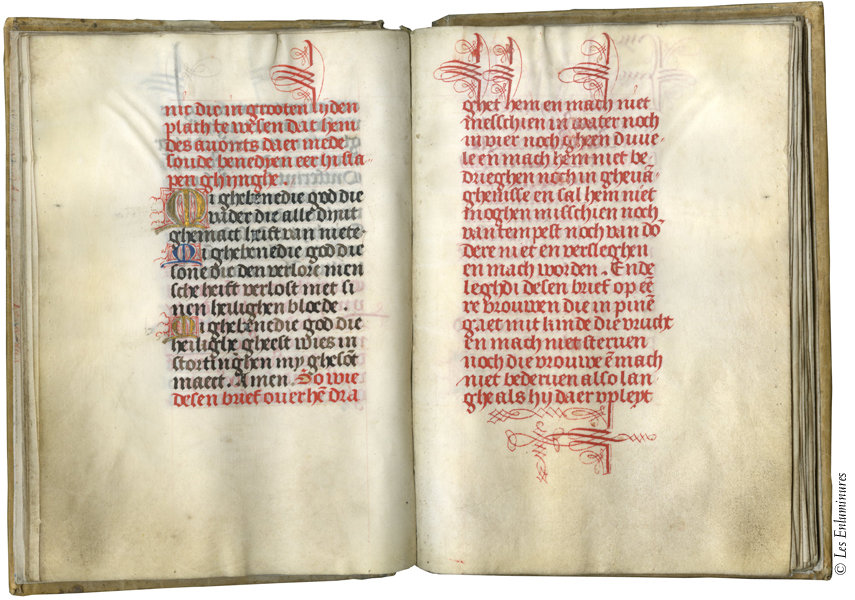 nit die in grooten lijden
plach te wesen dat hem
des auonts daer mede
soude benedyen eer hi sla-
pen ghijnghe.
Mi ghebenedie god die
vader die alle dinc
ghemact heift van niete.
Mi ghebenedie god die
sone die den verlore men
sche heift verlost met si
nen heilighen bloede.
Mi ghebenedie god die
heilighe gheest wies in
stortinghen my ghesont
maect. Amen. So wie
desen brief ouer hē dra
ghet hem en mach niet
messchien in water noch
in vier noch gheen duue-
le en mach hem niet be-
drieghen noch in gheuā-
ghenisse en sal hem niet
moghen misschien noch
van tempest noch van dō-
dere niet en versleghen
en mach worden. Ende
leghdi desen brief op eē
re vrouwen die in pinē
gaet mit kinde die vrucht
en mach niet steruen
noch die vrouwe ē mach
niet bederuen also lan-
ghe als hy daer vp leyt
© Les Enluminures